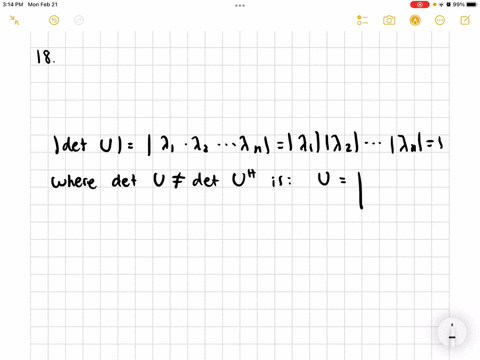 3:14 PM Mon Feb 21
99%
18.
|det U| = | λ₁ · λ₂ ⋯ λₙ | = |λ₁| |λ₂| ⋯ |λₙ| = 1
where det U ≠ det Uᴴ is: U = |